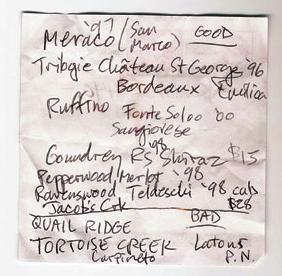 '97 (San
Meraco Marco) GOOD
Tribgie Château St George '96
Bordeaux
Ruffino Fonte Soloo '00
Sangiorese
'98
Goundrey RS Shiraz $15
Pepperwood Merlot '98
Ravenswood Teldeschi '98 cab
Jacob's Crk $28
QUAIL RIDGE BAD
TORTOISE CREEK Latour
P.N.